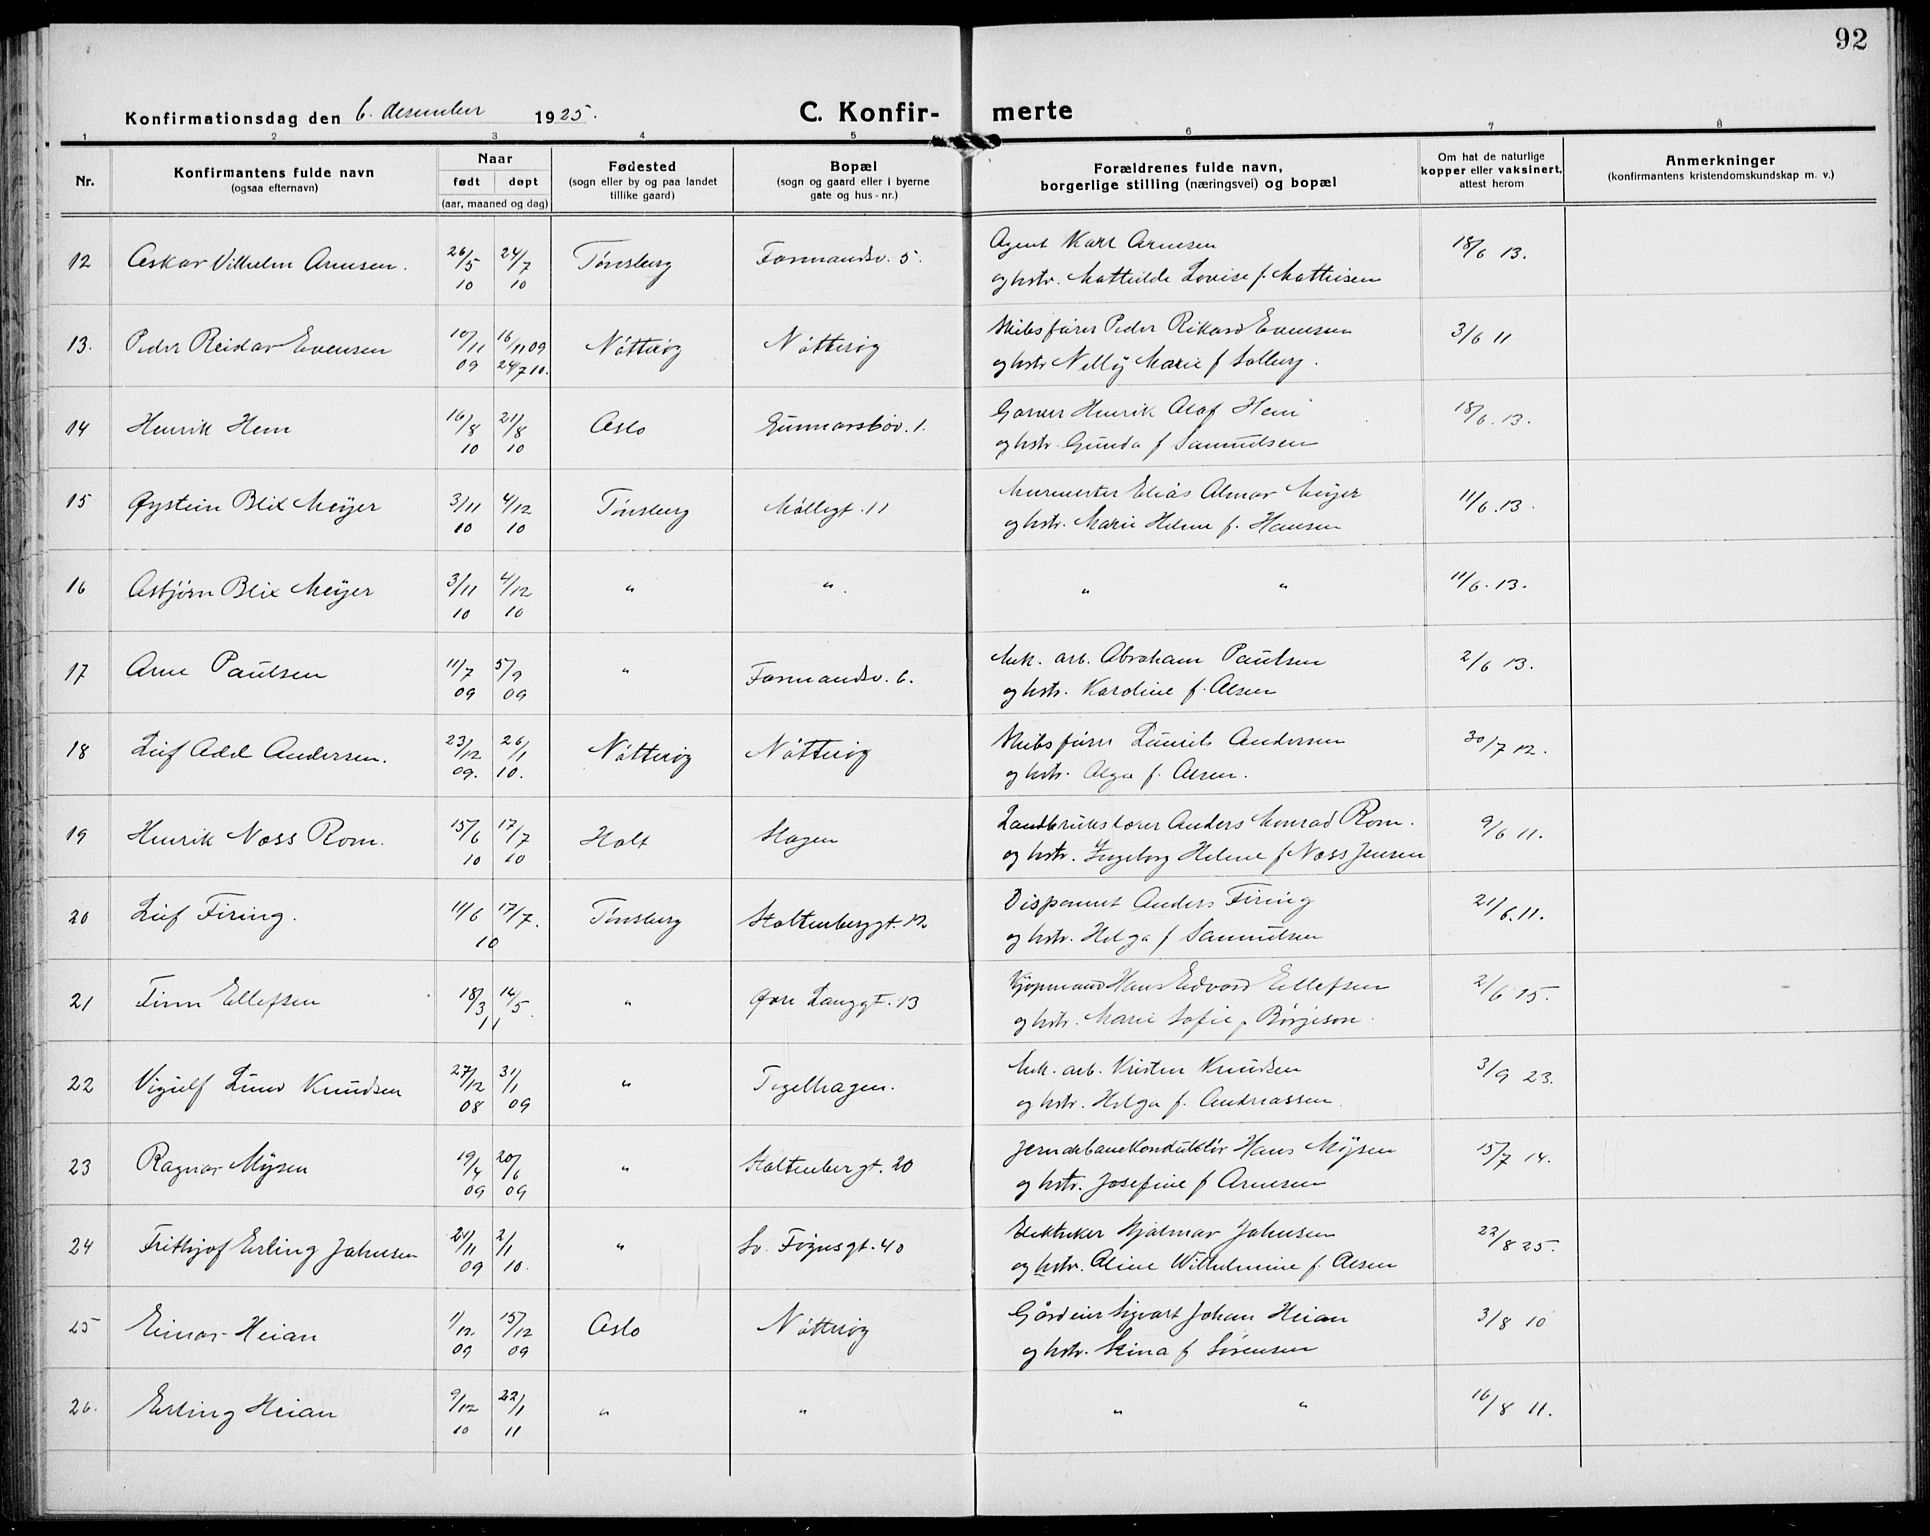 92
Konfirmationsdag den 6. desember 1925. C. Konfir- merte
1 2 3 4 5 6 7 8
Nr. Konfirmantens fulde navn (ogsaa efternavn) Naar født døpt (aar, maaned og dag) Fødested (sogn eller by og paa landet tillike gaard) Bopæl (sogn og gaard eller i byerne gate og hus-nr.) Forældrenes fulde navn, borgerlige stilling (næringsvei) og bopæl Om hat de naturlige kopper eller vaksinert, attest herom Anmerkninger (konfirmantens kristendomskundskap m. v.)
12 Oskar Vilhelm Arnesen. 26/5 10 24/7 10 Tønsberg Formandsv. 5. Agent Karl Arnesen 18/6 13.
og hstr. Mathilde Lovise f. Mathisen
13. Peder Reidar Evensen 10/11 09 16/11 09 24/7 10. Nøtterøy Nøtterøy Skibsfører Peder Rikard Evensen 3/6 11
og hstr Nelly Marie f Solberg.
14 Henrik Hem 16/8 10 21/8 10 Oslo Gunnarsbøv. 1. Garver Henrik Olaf Hem 18/6. 13.
og hstr. Gunda f Samuelsen
15 Øystein Blix Meyer 3/11 10 4/12 10 Tønsberg Møllegt. 11 Murmester Elias Almar Meyer 11/6. 13.
og hstr. Marie Helene f. Hansen
16 Asbjørn Blix Meyer 3/11 10 4/12 10 " ". " " 11/6. 13.
17 Arne Paulsen 11/7 09 5/9 09 " Formandsv. 6. Mek. arb. Abraham Paulsen 2/6 13.
og hstr. Karoline f. Olsen
18 Leif Odd Andersen. 23/12 09. 26/1 10. Nøtterøy Nøtterøy Skibsfører Laurits Andersen 30/7 12.
og hstr. Olga f. Olsen.
19 Henrik Næss Rom. 15/6 10 17/7 10 Holt Slagen Landbrukslærer Anders Monrad Rom. 9/6 11.
og hstr. Ingeborg Helene f Næss Jensen
20 Leif Firing. 11/6 17/7. 10 Tønsberg Stoltenberggt. 12 Disponent Anders Firing 21/6. 11.
og hstr. Helga f Samuelsen
21 Finn Ellefsen 18/3 14/5. 11 " Øvre Langgt. 13 Kjøpmand Hans Edvard Ellefsen 2/6 15.
og hstr. Marie Sofie f Børjeson.
22 Vigulf Lund Knudsen 27/12 08 31/1 09 " Teglhagen. Mek. arb. Kristen Knudsen 3/9 23.
og hstr. Helga f. Andreassen.
23 Ragnar Mysen 19/4 09 20/6 09 " Stoltenbergt. 20 Jernebanekonduktør Hans Mysen 15/7 14.
og hstr. Josefine f Arnesen
24 Frithjof Erling Johnsen 21/11 09 2/1 10. " Sv. Føynsgt. 40 Elektriker Hjalmar Johnsen 22/8 25.
og hstr. Oline Wilhelmine f. Olsen
25 Einar Heian 1/12. 09 15/12 09 Oslo Nøtterøy Gårdeier Sigvart Johan Heian 3/8 10
og hstr. Stina f Sørensen
26. Erling Heian 9/12 10 22/1 11 " " " " 16/8 11.